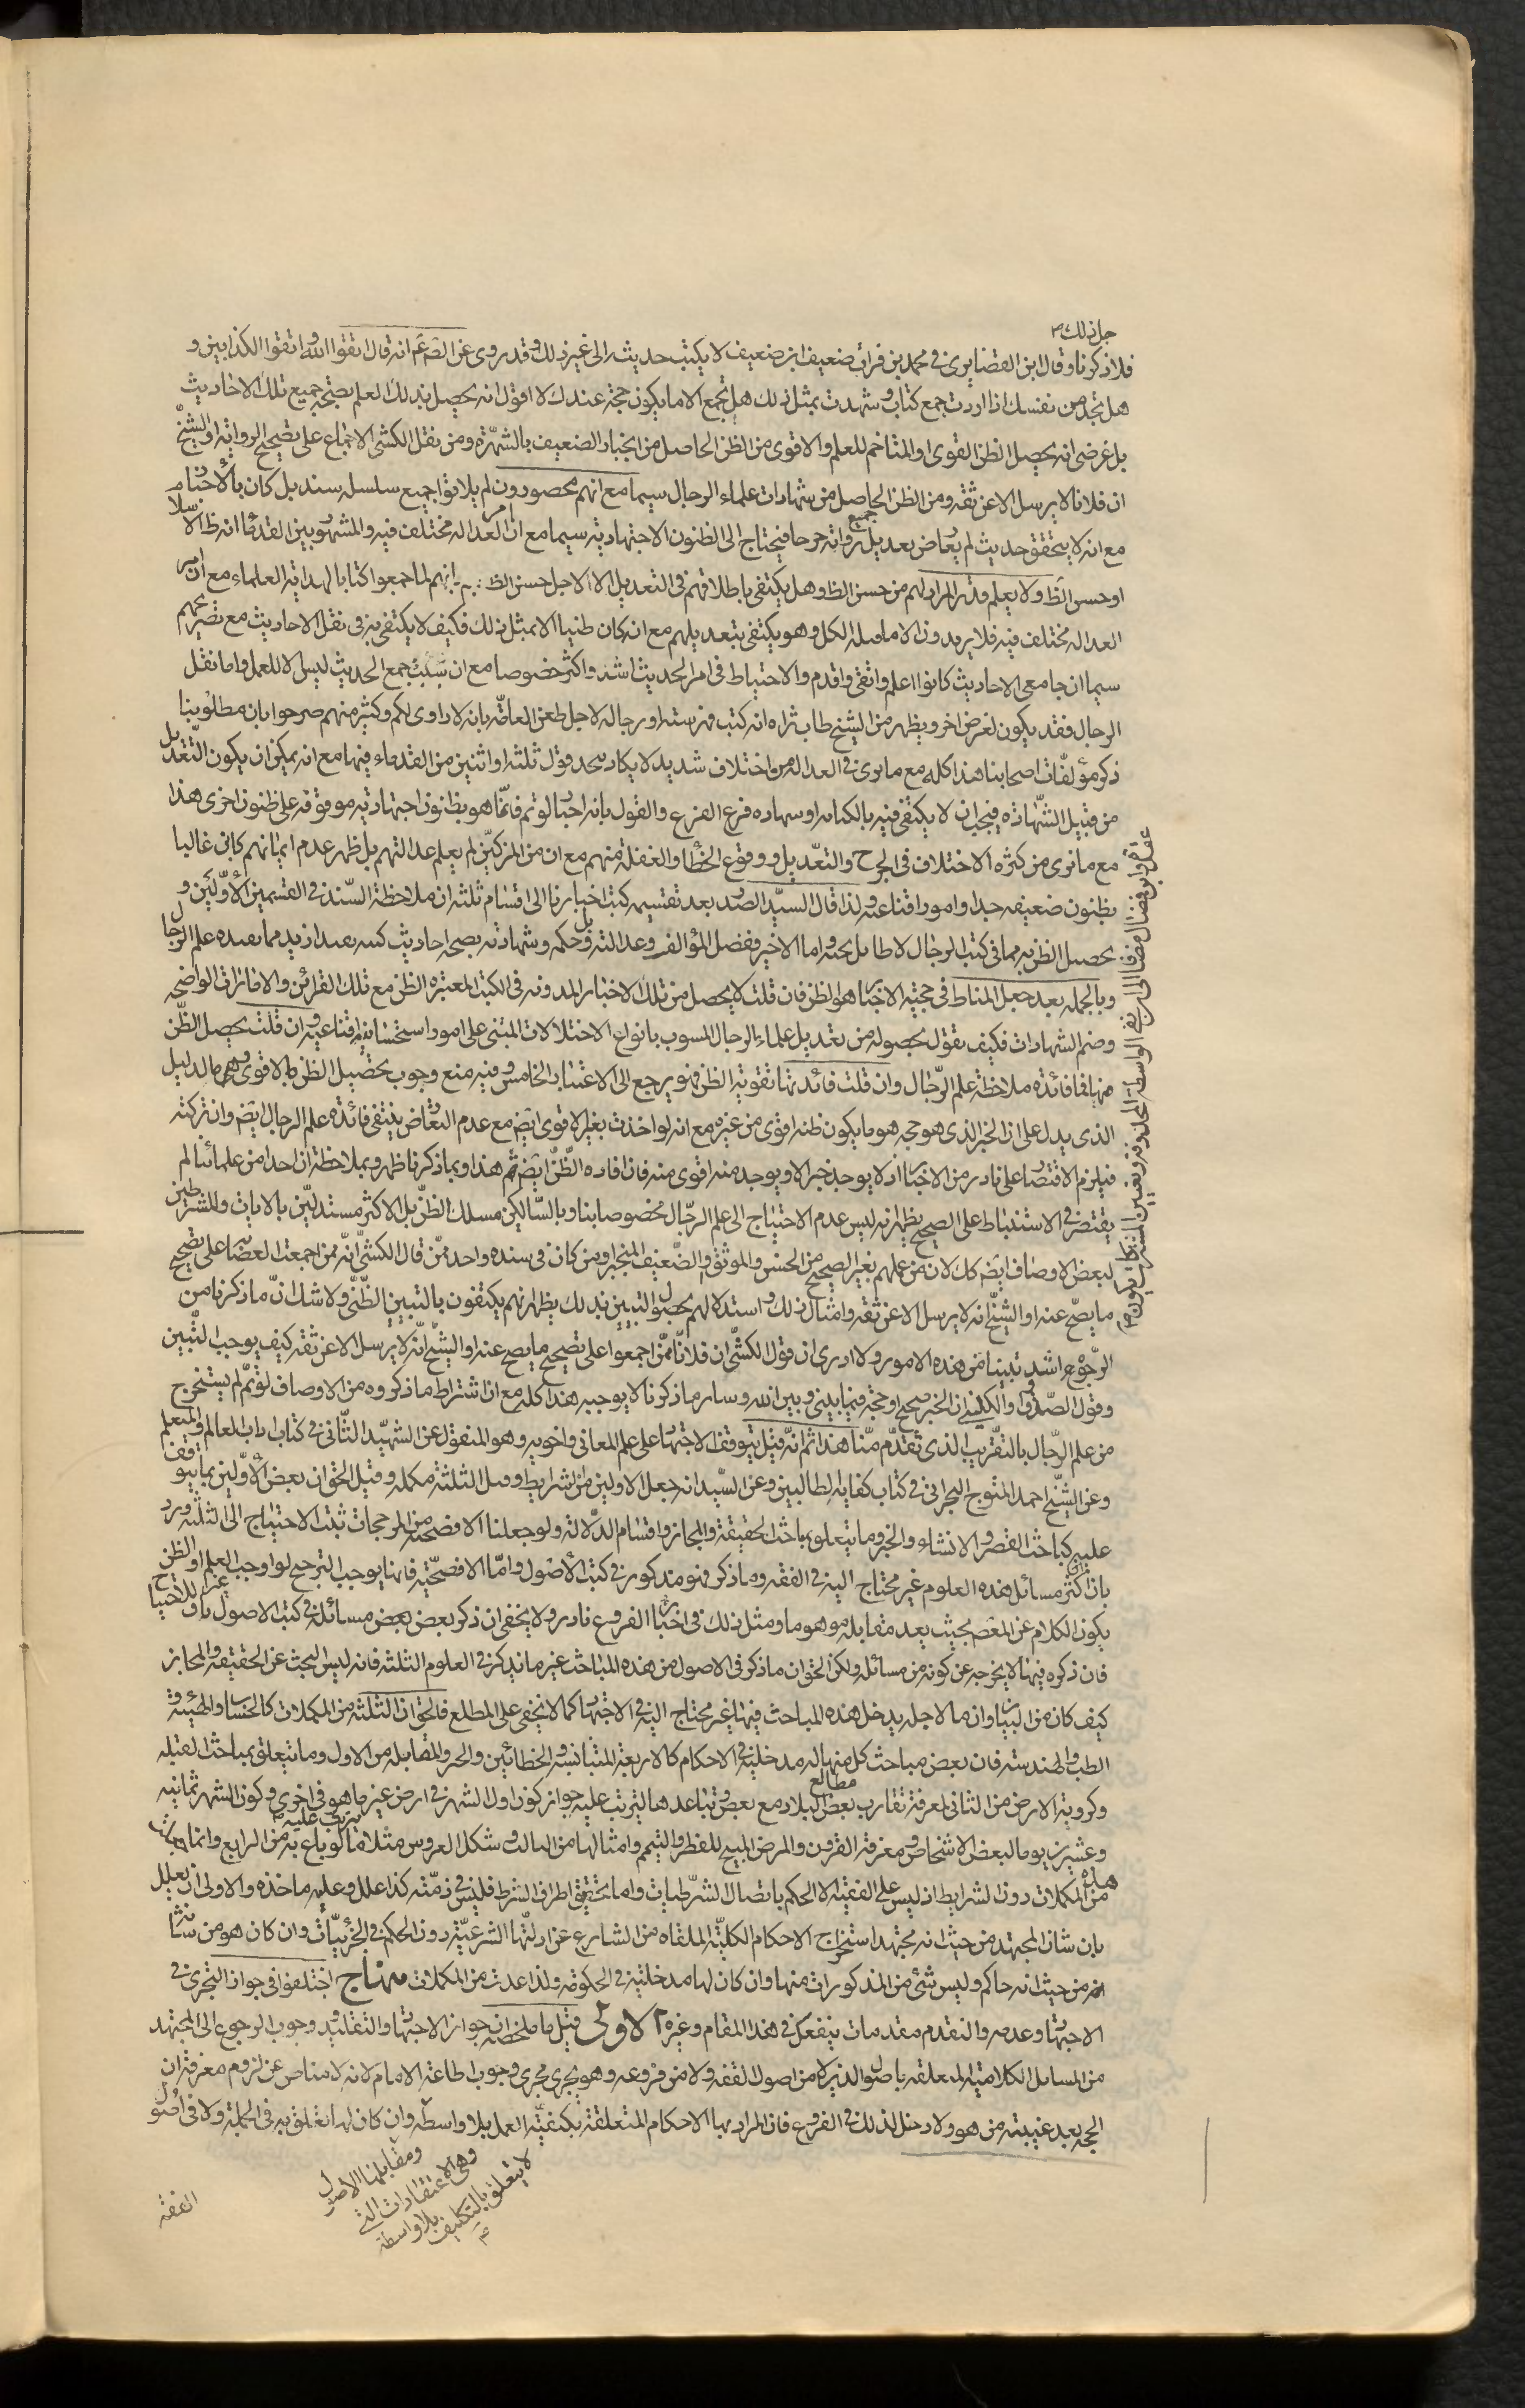 جل ذلك
فلاذكرنا وقال ابن الغضايرى فى محمد بن فرات ضعيف ابن ضعيف لا يكتب حديثه الى غير ذلك وقد روى عن الصم عم انه قال اتقوا الله واتقوا الكذابين و
هل تجد من نفسك اذا اردت جمع كتاب وشهدت بمثل ذلك هل تجمع الا ما يكون حجة عندك لا اقول انه يحصل بذلك العلم بصحة جميع تلك الاحاديث
بل غرضى انه يحصل الظن القوى او المتاخم للعلم والاقوى من الظن الحاصل من انجبار الضعيف بالشهرة ومن نقل الكشى الاجماع على تصحيح الرواية او الشيخ
ان فلانا لا يرسل الا عن ثقه ومن الظن الحاصل من شهادات علماء الرجال سيما مع انهم محصورون لم يلاقوا جميع سلسلة سند بل كان بالاخبار
مع انه لا يتحقق حديث لم يعارض تعديل جميع رواته جرحا فيحتاج الى الظنون الاجتهادية سيما مع ان امر العدالة مختلف فيه والمشهور بين القدماء انه ظ الاسلام
او حسن الظ ولا يعلم قدر المراد لهم من حسن الظ وهل يكتفى باطلاقهم فى التعديل الا لاجل حسن الظ بهم انهم لما جمعوا كتابا لهداية العلماء مع ان امر
العدالة مختلف فيه فلا يريدون الا ما قبله الكل وهو يكتفى بتعديلهم مع انه كان ظنيا الا بمثل ذلك فكيف لا يكتفى به فى نقل الاحاديث مع تصريحهم
سيما ان جامعى الاحاديث كانوا اعلم واتقى واقدم والاحتياط فى امر الحديث اشد واكثر خصوصا مع ان سبب جمع الحديث ليس الا للعمل واما نقل
الرجال فقد يكون لغرض اخر ويظهر من الشيخ طاب ثراه انه كتب فهرسته او رجاله لاجل طعن العامة بانه لا راوى لكم وكثير منهم صرحوا بان مطلوبنا
ذكر مؤلفات اصحابنا هذا كله مع ما نرى فى العدالة من اختلاف شديد لا يكاد يتحد قول ثلثة او اثنين من القدماء فيها مع انه يمكن ان يكون التعديل
من قبيل الشهادة فيجب ان لا يكتفى فيه بالكتابة او شهادة فرع الفرع والقول بانه اخبار لو تم فانما هو بظنون اجتهادية موقوفة على ظنون اخرى هذا
مع ما نرى من كثرة الاختلاف فى الجرح والتعديل ووقوع الخطا والغفلة منهم مع ان من المزكين لم يعلم عدالتهم بل ظهر عدم ايمانهم كان غالبا
بظنون ضعيفه جدا وامور اقناعيه ولذا قال السيد الصدر بعد تقسيمه كتب اخبارنا الى اقسام ثلثة ان ملاحظة السند فى القسمين الاولين و
تحصيل الظن به مما فى كتب الرجال لا طائل تحته واما الاخير ففضل المؤلف وعدالته بل وحكمه وشهادته بصحة احاديث كتبه يفيد ازيد مما يفيده علم الرجال
وبالجمله بعد جعل المناط فى حجية الاخبار هو الظن فان قلت لا يحصل من تلك الاخبار المدونه فى الكتب المعتبره الظن مع تلك القرائن والامارات الواضحه
وضم الشهادات فكيف تقول بحصوله من تعديل علماء الرجال المسوب بانواع الاختلالات المبتنى على امور استحسانية اقناعيه وان قلت يحصل الظن
منها فما فائدة ملاحظة علم الرجال وان قلت فائدتها تقوية الظن فهو يرجع الى الاعتبار الخامس وفيه منع وجوب تحصيل الظن بالاقوى وهم ما الدليل
الذى يدل على ان الخبر الذى هو حجه هو ما يكون ظنه اقوى من غيره مع انه لو اخذت بغير الاقوى ايضم مع عدم التعارض ينتفى فائدة علم الرجال ايضم وان تركته
فيلزم الاقتصار على نادر من الاخبار اذ لا يوجد خبر الا ويوجد منه اقوى منه فان افاده الظن ايضم ثم هذا وبما ذكرنا ظهر وبملاحظة ان احدا من علمائنا لم
يقتصر فى الاستنباط على الصحيح يظهر انه ليس عدم الاحتياج الى علم الرجال مخصوصا بنا وبالسالكين مسلك الظن بل الاكثر مستدلين بالايات والمشترطين
لبعض الاوصاف ايضم كك لان من عملهم بغير الصحيح من الحسن والموثق والضعيف المنجبر ومن كان فى سنده واحد ممن قال الكشى انه ممن اجمعت العصابة على تصحيح
ما يصح عنه او الشيخ انه لا يرسل الا عن ثقه وامثال ذلك واستدلالهم بحصول التبيين بذلك يظهر انهم يكتفون بالتبيين الظنى ولا شك ان ما ذكرنا من
الرجوع اشد تبينا من هذه الامور ولا ادرى ان قول الكشى ان فلانا ممن اجمعوا على تصحيح ما يصح عنه او الشيخ انه لا يرسل الا عن ثقه كيف يوجب التبيين
وقول الصدوق والكلينى ان الخبر صحيح او حجة فيما بينى وبين الله وساير ما ذكرنا لا يوجبه هذا كله مع ان اشتراط ما ذكروه من الاوصاف لو تم لم يستخرج
من علم الرجال بالتقريب الذى تقدم منا هذا ثم انه قيل يتوقف الاجتهاد على علم المعانى واخويه وهو المنقول عن الشهيد الثانى فى كتاب اداب العالم والمتعلم
وعن الشيخ احمد المتوج البحرانى فى كتاب كفاية الطالبين وعن السيد انه جعل الاولين من الشرايط وقيل الثلثة مكمله وقيل الحق ان بعض الاولين مما يتوقف
عليه كمباحث القصر والانشاء والخبر وما يتعلق بمباحث الحقيقة والمجاز واقسام الدلالة ولو جعلنا الافصحية من المرجحات ثبت الاحتياج الى الثلثة ورد
بان اكثر مسائل هذه العلوم غير محتاج اليه فى الفقه وما ذكر فهو مذكور فى كتب الاصول واما الافصحية فانما يوجب الترجيح لو اوجب العلم او الظن
يكون الكلام عن المعصم بحيث يعد مقابله موهوما ومثل ذلك فى اخبار الفروع نادر ولا يخفى ان ذكر بعض مسائله فى كتب الاصول
فان ذكره فيها لا يخرجه عن كونه من مسائله ولكن الحق ان ما ذكر فى الاصول من هذه المباحث غير ما يذكر فى العلوم الثلثة فانه ليس البحث عن الحقيقه والمجاز
كيف كان من البيان وان ما لاجله يدخل هذه المباحث فيها غير محتاج اليه فى الاجتهاد كما لا يخفى على المطلع فالحق ان الثلثة من المكملات كالحساب والهيئة و
الطب والهندسة فان بعض مباحث كل منها له مدخلية فى الاحكام كالاربعة المتناسبة والخطائين والجبر والمقابله من الاول وما يتعلق بمباحث القبلة
وكروية الارض من الثانى لمعرفة تقارب مطالع بعض البلاد مع بعض وتباعدها ليترتب عليه جواز كون اول الشهر فى ارض غير ما هو فى اخرى وكون الشهر ثمانية
وعشرين يوما لبعض الاشخاص ومعرفة القرن والمرض المبيح للفطر والتيمم وامثالها من الثالث وشكل العروس مثلا فيما لو باع به من الرابع وانما
هذه من المكملات دون الشرايط اذ ليس على الفقيه الا الحكم باتصال الشرطيات واما تحقيق اطراف الشرط فليس فى ذمته كذا علل وعليه ماخذه والاولى ان يعلل
بان شان المجتهد من حيث انه مجتهد استخراج الاحكام الكلية المتلقاه من الشارع عن ادلتها الشرعية دون الحكم فى الجزئيات وان كان هو من شانه
من حيث انه حاكم وليس شئ من المذكورات منها وان كان لها مدخلية فى الحكومة ولذا عدت من المكملات منهاج اختلفوا فى جواز التجزى فى
الاجتهاد وعدمه ولنقدم مقدمات ينفعك فى هذا المقام وغيره الاولى قيل ما ملخصه ان جواز الاجتهاد والتقليد ووجوب الرجوع الى المجتهد
من المسايل الكلامية المتعلقه باصول الدين لا من اصول الفقه ولا من فروعه وهو يجرى مجرى وجوب اطاعة الامام لانه لا مناص عن لزوم معرفة ان
الحجه بعد غيبته من هو ولا دخل لذلك فى الفروع فان المراد بها الاحكام المتعلقة بكيفية العمل بلا واسطه وان كان لها تعلق به فى الجملة ولا فى اصول
ومقابلها الاصول
وهى الاعتقادات التى
لا يتعلق بالتكليف
بلا واسطة
الفقه